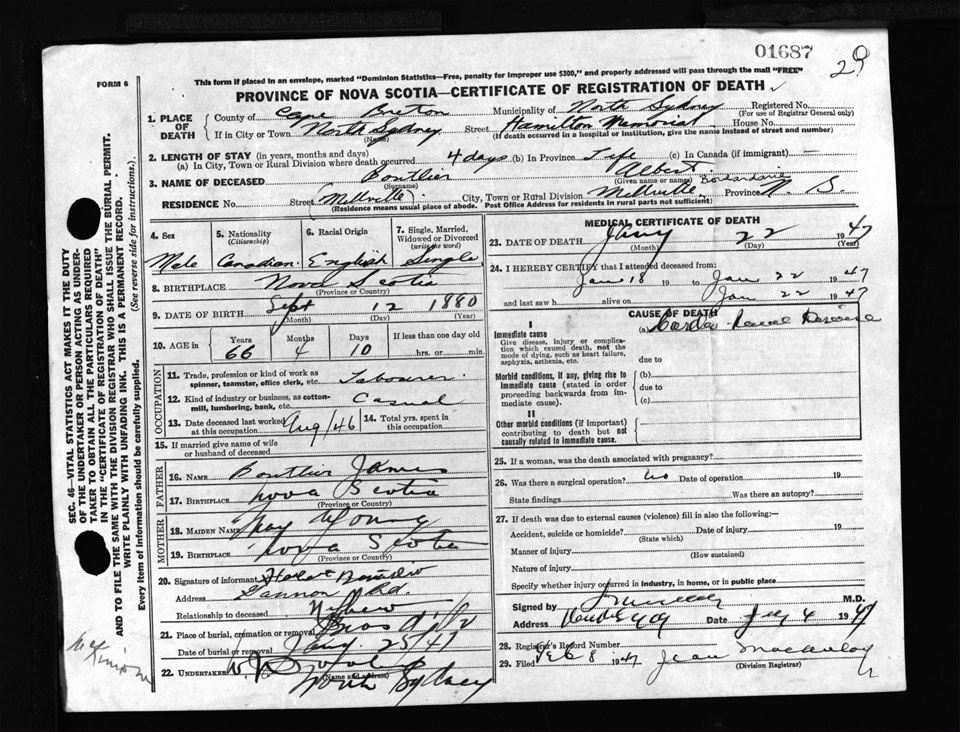 01687
29
FORM 6
This form if placed in an envelope, marked "Dominion Statistics—Free, penalty for improper use $300," and properly addressed will pass through the mail "FREE"
PROVINCE OF NOVA SCOTIA—CERTIFICATE OF REGISTRATION OF DEATH
1. PLACE OF DEATH
County of Cape Breton Municipality of North Sydney Registered No.
(For use of Registrar General only)
If in City or Town North Sydney Street Hamilton Memorial House No.
(Name) (If death occurred in a hospital or institution, give the name instead of street and number)
2. LENGTH OF STAY (in years, months and days)
(a) In City, Town or Rural Division where death occurred 4 days (b) In Province Life (c) In Canada (if immigrant) —
3. NAME OF DECEASED Boutlier Albert
(Surname) (Given name or names)
RESIDENCE No. Street Millville City, Town or Rural Division Millville Province N. S.
(Residence means usual place of abode. Post Office Address for residents in rural parts not sufficient)
4. Sex
Male
5. Nationality
(Citizenship)
Canadian
6. Racial Origin
English
7. Single, Married, Widowed or Divorced
(write the word)
Single
8. BIRTHPLACE Nova Scotia
(Province or Country)
9. DATE OF BIRTH Sept 12 1880
(Month) (Day) (Year)
10. AGE in Years Months Days If less than one day old
66 4 10 hrs. or min.
OCCUPATION
11. Trade, profession or kind of work as spinner, teamster, office clerk, etc. Labourer
12. Kind of industry or business, as cotton-mill, lumbering, bank, etc. Casual
13. Date deceased last worked at this occupation Aug/46
14. Total yrs. spent in this occupation
15. If married give name of wife or husband of deceased
FATHER
16. NAME Boutlier James
17. BIRTHPLACE Nova Scotia
(Province or Country)
MOTHER
18. MAIDEN NAME May Young
19. BIRTHPLACE Nova Scotia
(Province or Country)
20. Signature of informant
Address Rd.
Relationship to deceased Nephew
21. Place of burial, cremation or removal Bras d'
Date of burial or removal Jany. 25/47
22. UNDERTAKER W.
(Name and address)
North Sydney
MEDICAL CERTIFICATE OF DEATH
23. DATE OF DEATH Jany 22 1947
(Month) (Day) (Year)
24. I HEREBY CERTIFY that I attended deceased from:
Jan 18 19 to Jan 22 1947
and last saw h alive on Jan 22 1947
CAUSE OF DEATH
I
Immediate cause
Give disease, injury or complication which caused death, not the mode of dying, such as heart failure, asphyxia, asthenia, etc.
(a) Cardio-Renal Disease
due to
Morbid conditions, if any, giving rise to immediate cause (stated in order proceeding backwards from immediate cause).
(b)
due to
(c)
II
Other morbid conditions (if important) contributing to death but not causally related to immediate cause.
25. If a woman, was the death associated with pregnancy?
26. Was there a surgical operation? no Date of operation 19
State findings Was there an autopsy?
27. If death was due to external causes (violence) fill in also the following:—
Accident, suicide or homicide? Date of injury 19
(State which)
Manner of injury
(How sustained)
Nature of injury
Specify whether injury occurred in industry, in home, or in public place
Signed by M.D.
Address Date 4 1947
28. Registrar's Record Number
29. Filed Feb 8 1947 Jean
(Division Registrar)
SEC. 46—VITAL STATISTICS ACT MAKES IT THE DUTY
OF THE UNDERTAKER OR PERSON ACTING AS UNDER-
TAKER TO OBTAIN ALL THE PARTICULARS REQUIRED
IN THE "CERTIFICATE OF REGISTRATION OF DEATH"
AND TO FILE THE SAME WITH THE DIVISION REGISTRAR WHO SHALL ISSUE THE BURIAL PERMIT.
WRITE PLAINLY WITH UNFADING INK. THIS IS A PERMANENT RECORD.
Every item of information should be carefully supplied. (See reverse side for instructions).